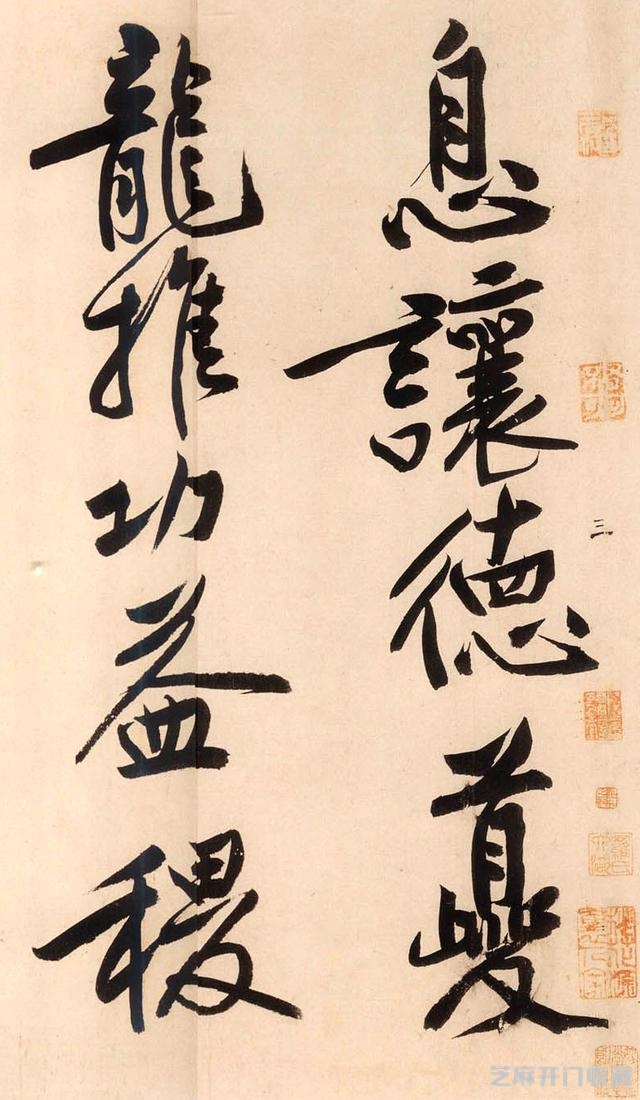 息讓德夔
龍推功益稷
三
芝麻开门收藏